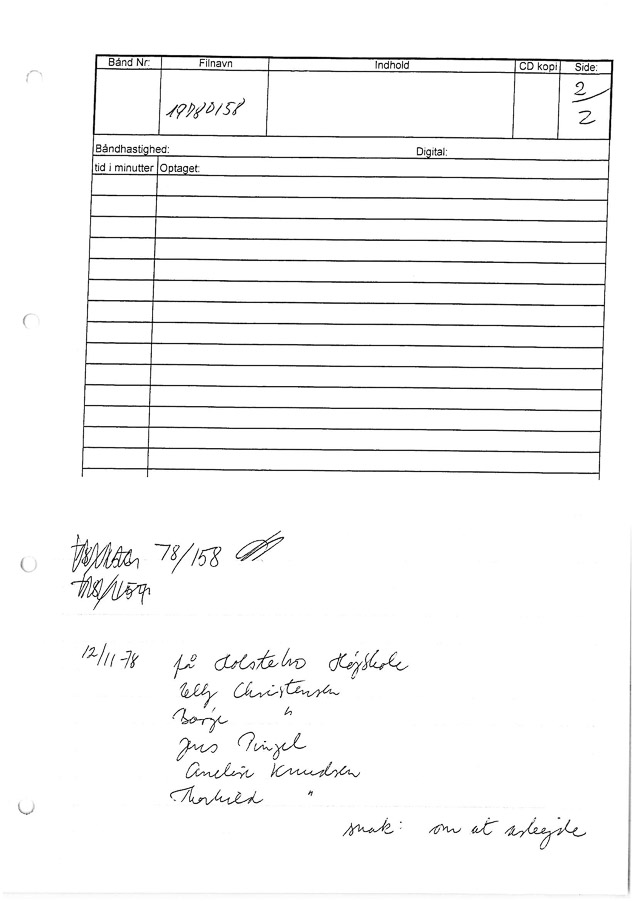 Bånd Nr: Filnavn Indhold CD kopi Side:
19780158 2/2
Båndhastighed: Digital:
tid i minutter Optaget:
78/158
12/11-78 på Holstebro Højskole
Elly Christensen
Børge "
Jens Pinzel
Anelise Knudsen
Thorkild "
snak: om at arbejde